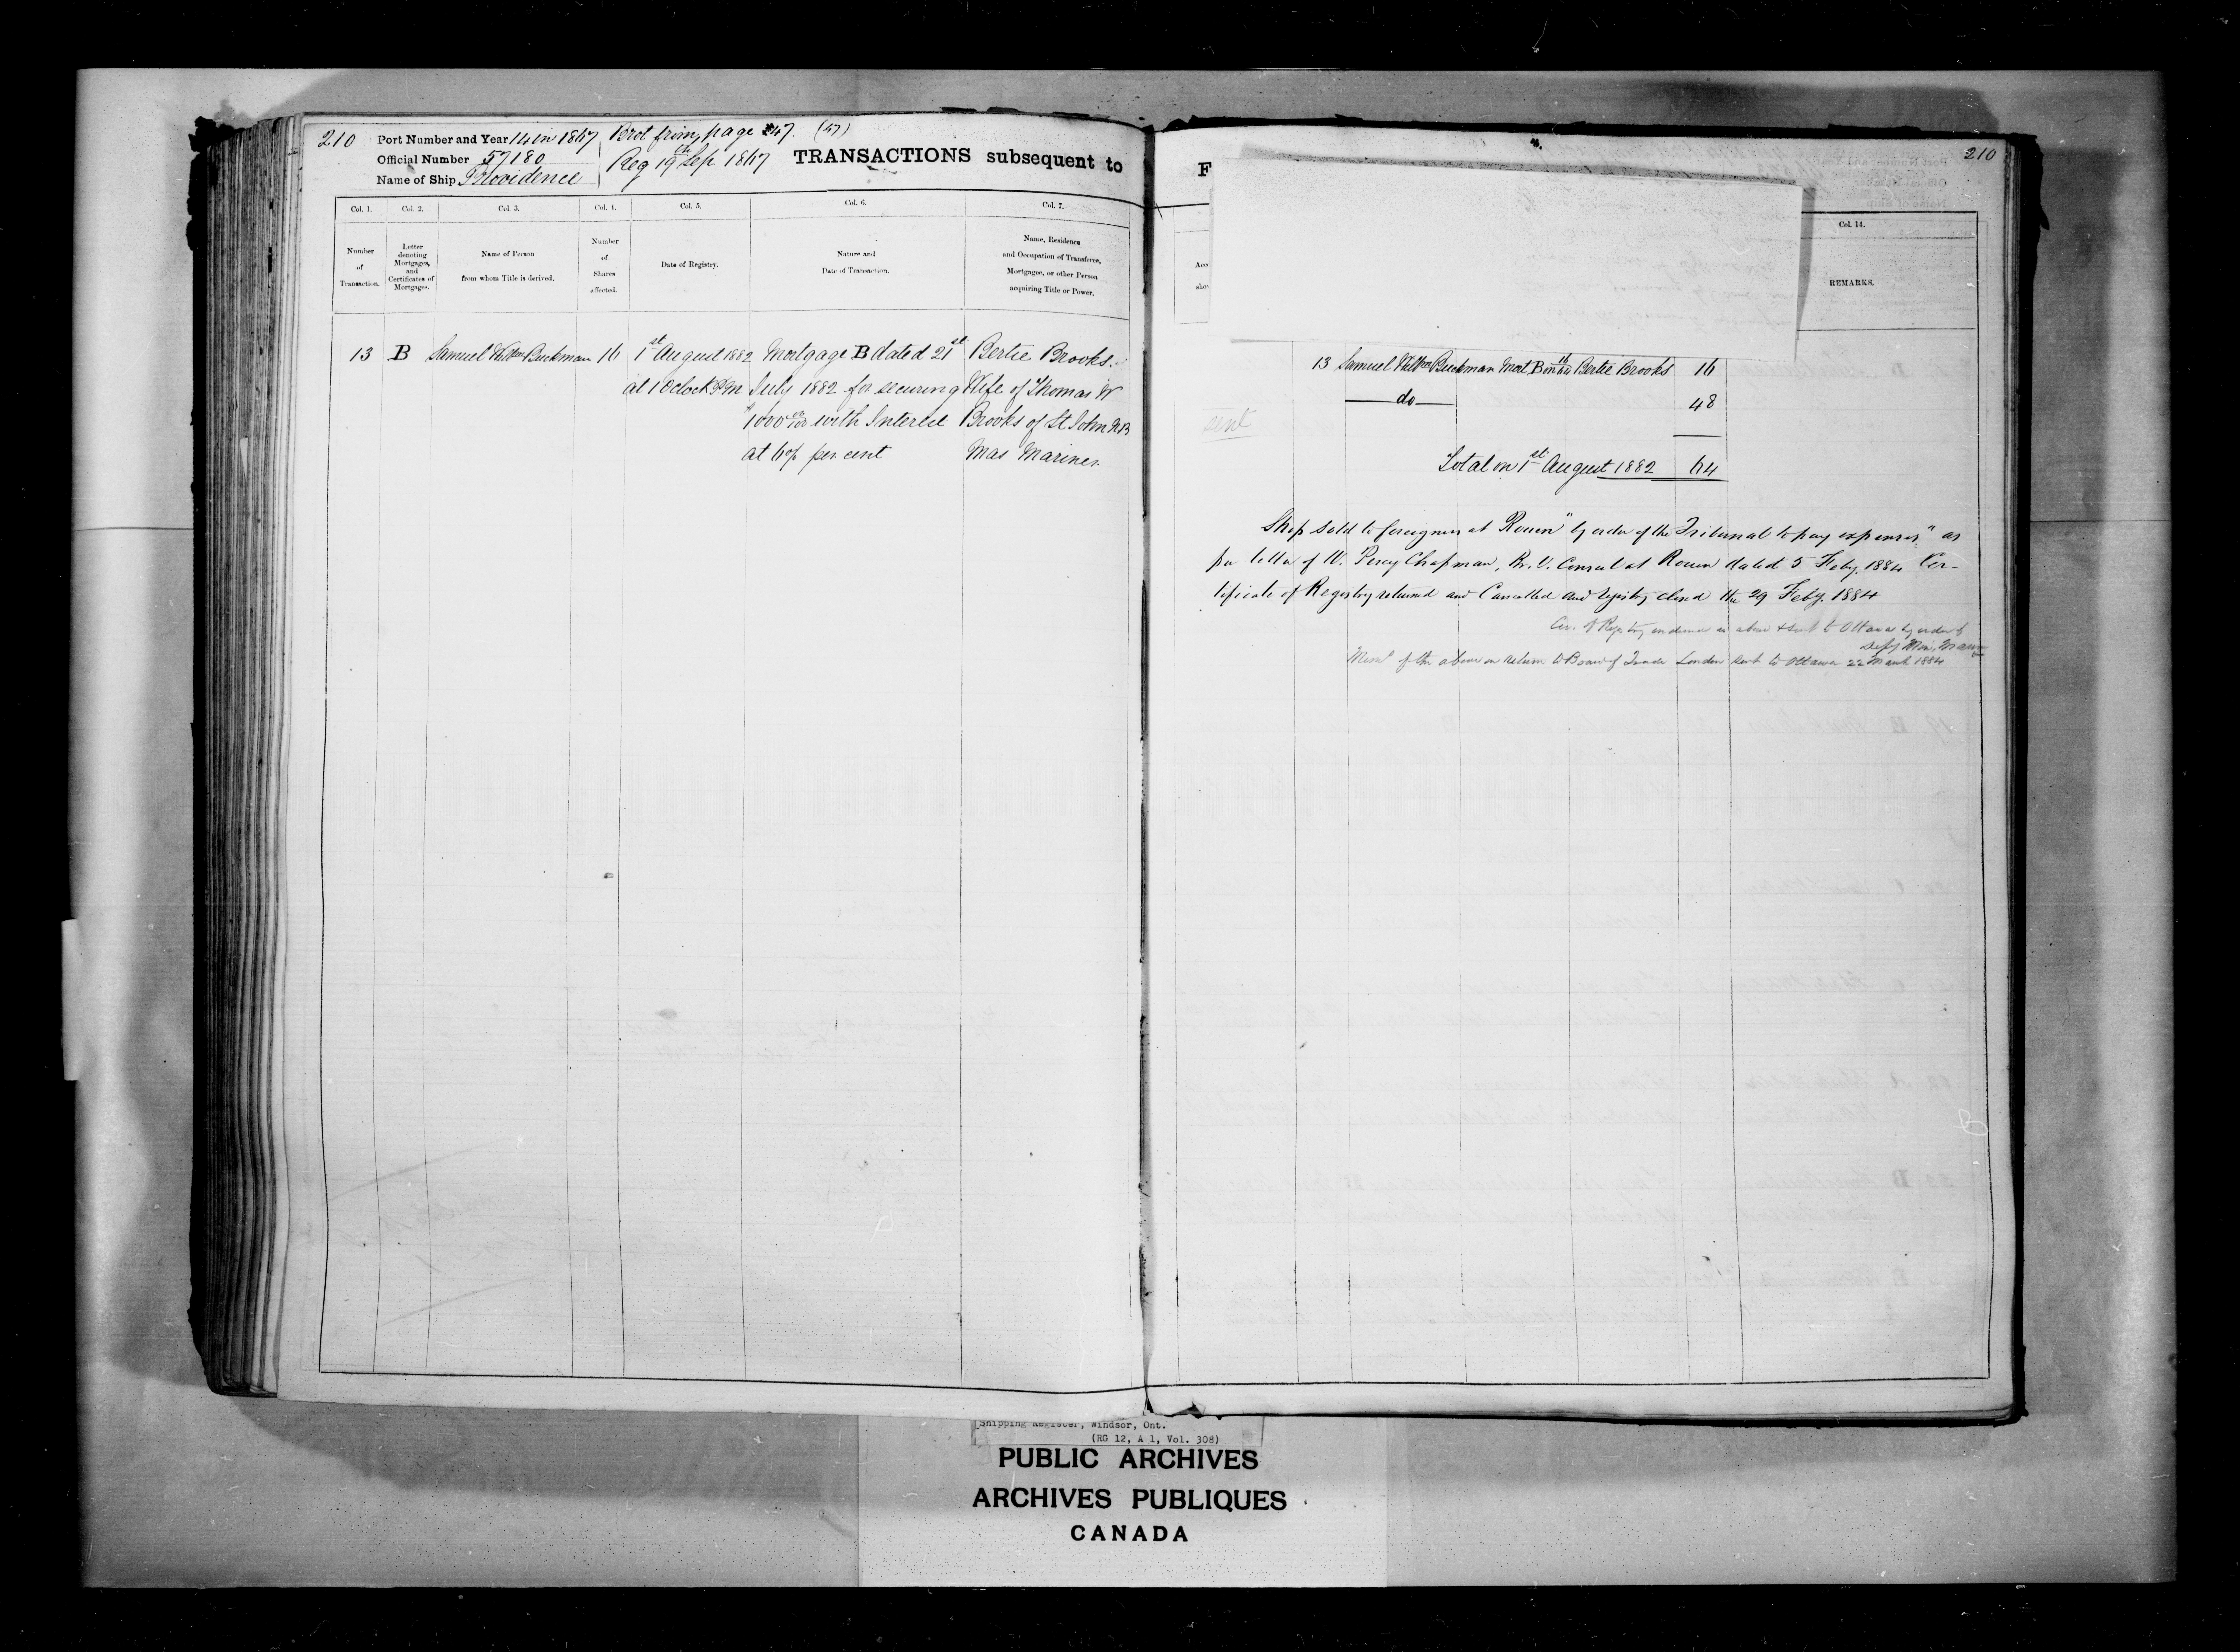 210 Port Number and Year 14 in 1867 Brot from page 47. (47)
Official Number 57180 Reg 19th Sep 1867 TRANSACTIONS subsequent to
Name of Ship Providence
Col. 1. Col. 2. Col. 3. Col. 4. Col. 5. Col. 6. Col. 7.
Number of Transaction.
Letter denoting Mortgages, and Certificates of Mortgages.
Name of Person from whom Title is derived.
Number of Shares affected.
Date of Registry.
Nature and Date of Transaction.
Name, Residence and Occupation of Transferee, Mortgagee, or other Person acquiring Title or Power.
13 B Samuel Buckman 16 1st August 1882 Mortgage B dated 21st Bertie Brooks.
at 1 Oclock PM July 1882 for securing Wife of Thomas W
$1000 00/100 with Interest Brooks of St John NB
at 6 % per cent Mas Mariner
210
F
Col. 14.
Acc
sho
REMARKS.
13 Samuel Buckman Mort B Bertie Brooks 16
do 48
sent
Total on 1st August 1882 64
Ship sold to foreigners at Rouen "by order of the Tribunal to pay expenses" as
per letter of W. Percy Chapman, Br. V. Consul at Rouen dated 5 Feby. 1884 Cer-
tificate of Registry returned and Cancelled and registry closed the 29 Feby. 1884
Cer. of Registry endorsed as above & sent to Ottawa by order of
Depy Min. Marine
of the above on return to Board of Trade London sent to Ottawa 22 March 1884
Shipping Register, Windsor, Ont.
(RG 12, A 1, Vol. 308)
PUBLIC ARCHIVES
ARCHIVES PUBLIQUES
CANADA